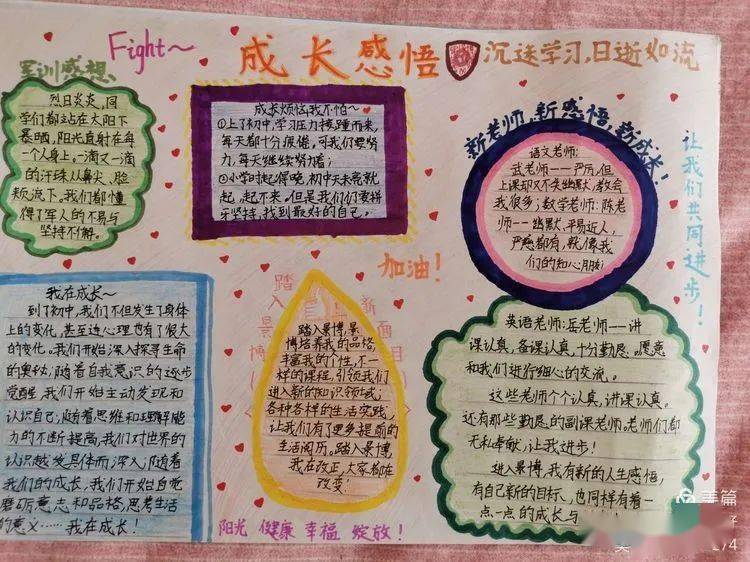 Fight~
成长感悟
沉迷学习,日逝如流
军训感想、
烈日炎炎,同
学们都站在太阳下
暴晒,阳光直射在每
一个人身上,一滴又一滴
的汗珠从鼻尖、脸
颊流下。我们都懂
得了军人的不易与
坚持不懈。
成长烦恼,我不怕~
①上了初中,学习压力接踵而来,
每天都十分疲倦,可我们要努
力,每天继续努力着;
②小学时起得晚,初中天未亮就
起,起不来。但是我们们要拼
牙坚持,找到最好的自己。
新老师,新感悟,新成长!
语文老师:
武老师——严厉,但
上课却又不失幽默,教会
我很多;数学老师:陈老
师——幽默,平易近人,
严慈都有,就像我
们的知心朋友;
让我们共同进步!
加油!
我在成长~
到了初中,我们不但发生了身体
上的变化,甚至连心理也有了很大
的变化。我们开始深入探寻生命
的奥秘;随着自我意识的逐步
觉醒,我们开始主动发现和
认识自己;随着思维和理解能
力的不断提高,我们对世界的
认识越发具体而深入;随着
我们的成长,我们开始自觉
磨砺意志和品格,思考生活
的意义……我在成长!
踏入景博
新面目
踏入景博,景
博培养我的品格,
丰富我的个性,不一
样的课程,引领我们
进入新的知识领域,
各种各样的生活实践,
让我们有了更多提前的
生活阅历。踏入景博,
我在改正,大家都在
改变。
英语老师:岳老师——讲
课认真,备课认真,十分勤恳。愿意
和我们进行细心的交流。
这些老师个个认真,讲课认真。
还有那些勤恳的副课老师。老师们都
无私奉献,让我进步!
进入景博,我有新的人生感悟,
有自己新的目标,也同样有着一
点一点的成长与
阳光 健康 幸福 绽放!
美篇